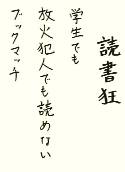 読書狂
学生でも
放火犯人でも読めない
ブックマッチ